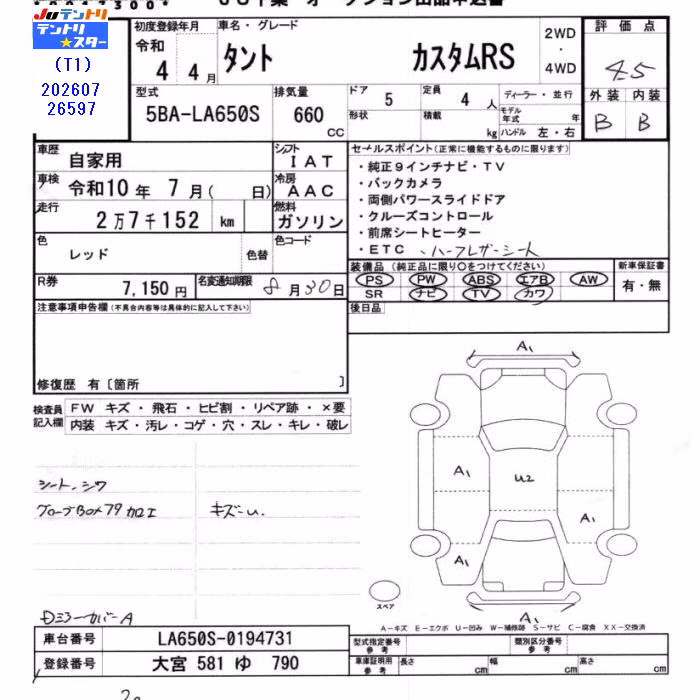 Juテントリ
テントリ★スター
(T1)
202607
26597
初度登録年月
令和
4 4月
車名・グレード
タント カスタムRS
2WD
・
4WD
評価点
4.5
型式
5BA-LA650S
排気量
660
CC
ドア 5
形状
定員 4 人
積載 kg
ディーラー・並行
モデル年式 年
ハンドル 左・右
外装 内装
B B
車歴 自家用
シフト IAT
車検 令和10年 7月( 日)
冷房 AAC
走行 2万7千152 km
燃料 ガソリン
色 レッド
色替
色コード
R券 7,150円
名変通知期限 8月30日
セールスポイント(正常に機能するものに限ります)
・純正9インチナビ・TV
・バックカメラ
・両側パワースライドドア
・クルーズコントロール
・前席シートヒーター
・ETC ・ハーフレザーシート
装備品(純正品に限り○をつけてください)
PS PW ABS エアB AW
SR ナビ TV カワ
新車保証書
有・無
後日品
注意事項申告欄(不具合内容等は具体的に記入して下さい)
修復歴 有〔箇所 〕
検査員記入欄
FW キズ・飛石・ヒビ割・リペア跡・×要
内装 キズ・汚レ・コゲ・穴・スレ・キレ・破レ
シート、シワ
グローブBOXフタ加工 キズ
A1
A1
U2
A1
A1
A1
スペア
A-キズ E-エクボ U-凹み W-補修跡 S-サビ C-腐食 XX-交換済
車台番号 LA650S-0194731
登録番号 大宮 581 ゆ 790
型式指定番号 参考
類別区分番号 参考
車庫証明用 参考
長さ cm
幅 cm
高さ cm